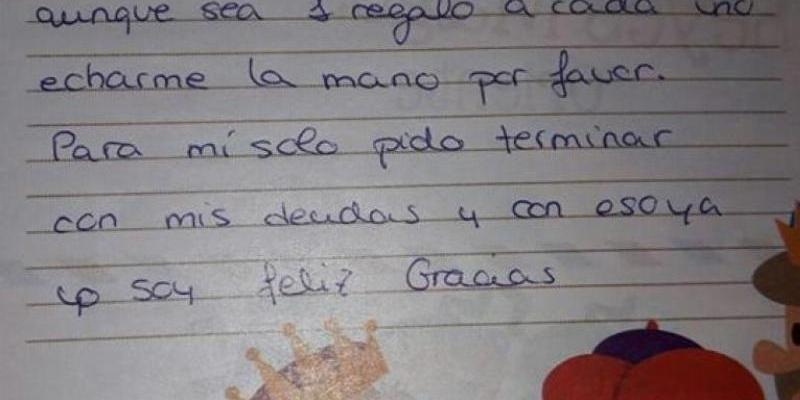 aunque sea 1 regalo a cada uno
echarme la mano por favor.
Para mí solo pido terminar
con mis deudas y con esoya
yo soy feliz Gracias